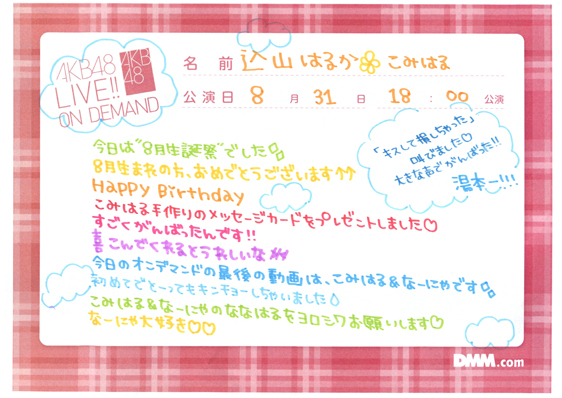 AKB48
LIVE!!
ON DEMAND
AKB
48
名 前 込山 はるか こみはる
公演日 8 月 31 日 18 : 00 公演
「キスして損しちゃった」
叫びました♡
大きな声でがんばった!!
湯本一!!!
今日は"8月生誕祭"でした
8月生まれの方、おめでとうございます↑↑
HAPPY Birthday
こみはる手作りのメッセージカードをプレゼントしました♡
すごくがんばったんです!!
喜こんでくれるとうれしいな
今日のオンデマンドの最後の動画は、こみはる&なーにゃです
初めてでとーってもキンチョーしちゃいました
こみはる&なーにゃのななはるをヨロシクお願いします♡
なーにゃ大好き♡♡
DMM.com